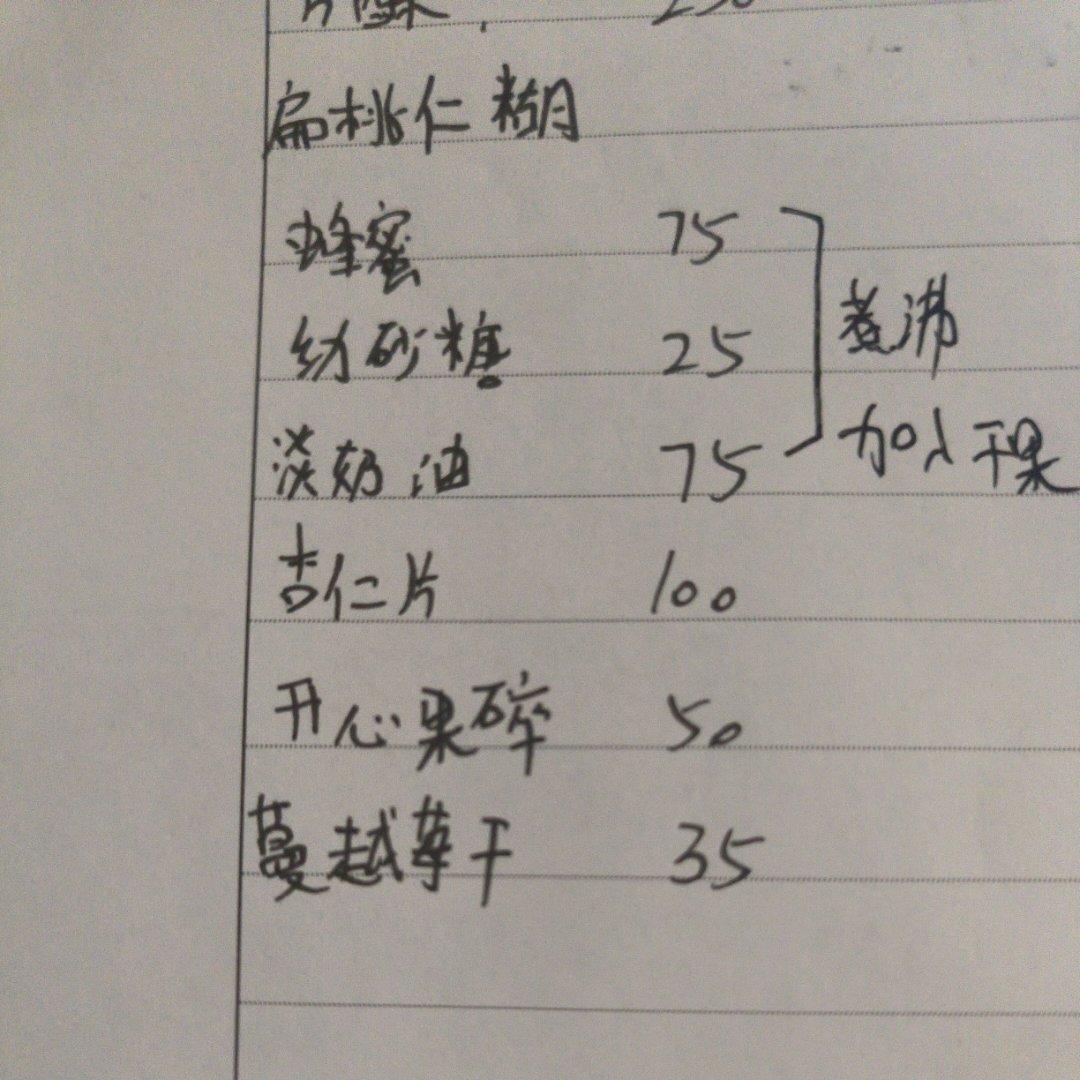 扁桃仁糊
蜂蜜 75
幼砂糖 25
煮沸
淡奶油 75
加入干果
杏仁片 100
开心果碎 50
蔓越莓干 35